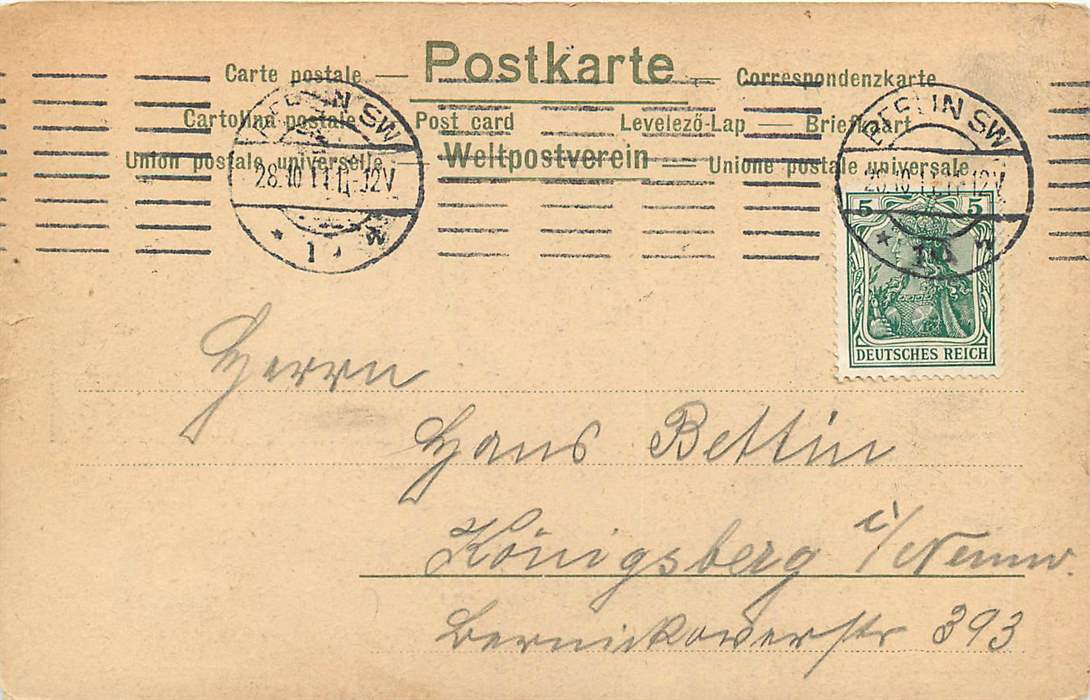 Postkarte
Carte postale — Correspondenzkarte
Cartolina postale Post card Levelező-Lap — Briefkaart
Union postale universelle — Weltpostverein — Unione postale universale
BERLIN SW
28.10.11. 11-12V
* 11 w
BERLIN SW
28.10.11. 11-12V
* 11 w
5 5
DEUTSCHES REICH
Herrn
Hans Bettin
Königsberg i/Neumw.
Bernickowerstr 393